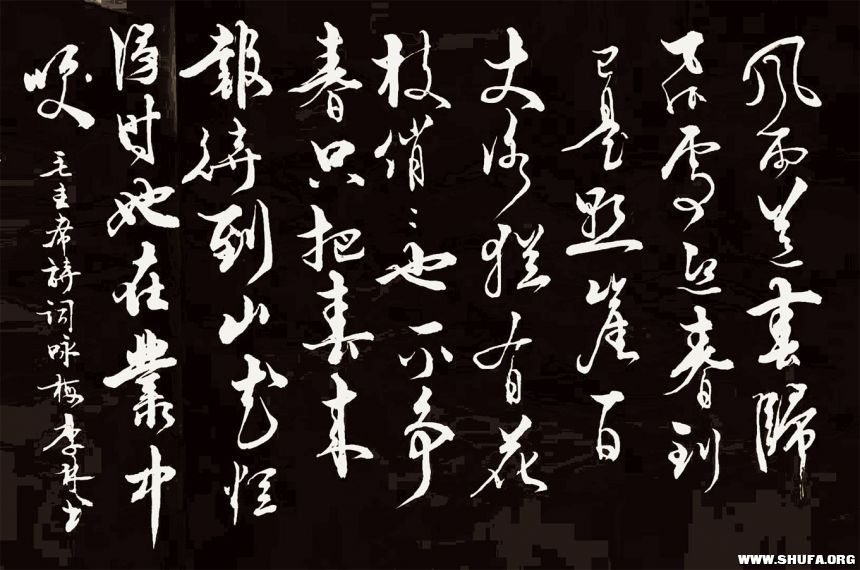 風雨送春歸
飛雪迎春到
已是懸崖百
丈冰猶有花
枝俏〻也不争
春只把春来
報待到山花烂
漫时她在叢中
咲 毛主席詩词咏梅 李 书
WWW.SHUFA.ORG